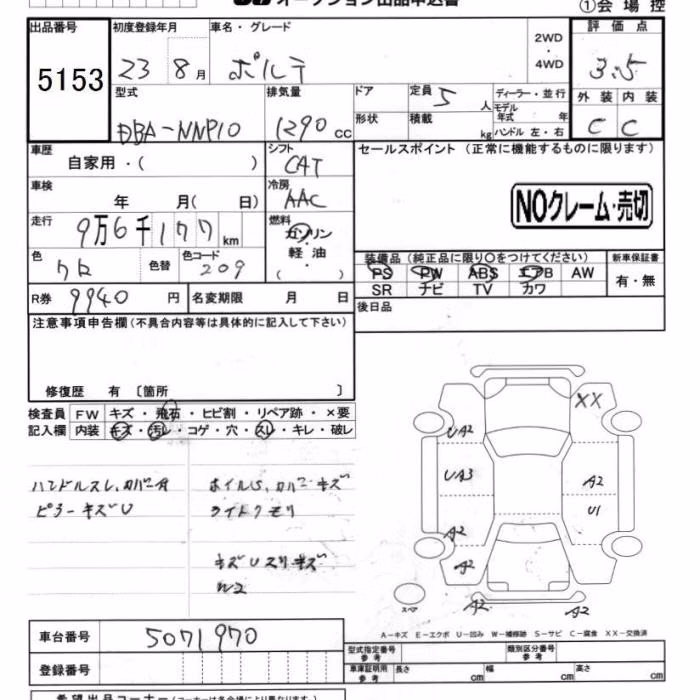 オークション出品申込書
①会場控
出品番号 初度登録年月 車名・グレード 2WD 評価点
5153 23 8月 ポルテ 4WD 3.5
型式 排気量 ドア 定員 5人 ディーラー・並行 外装 内装
DBA-NNP10 1290cc 形状 積載 kg モデル年式 年 ハンドル 左・右 C C
車歴 シフト セールスポイント (正常に機能するものに限ります)
自家用・( ) CAT
車検 冷房
年 月( 日) AAC
NOクレーム・売切
走行 9万6千177km 燃料 ガソリン
軽油
( )
色 クロ 色替 色コード 209
装備品 (純正品に限り○をつけてください) 新車保証書
PS PW ABS エアB AW 有・無
SR ナビ TV カワ
R券 9940円 名変期限 月 日 後日品
注意事項申告欄(不具合内容等は具体的に記入して下さい)
修復歴 有 〔箇所 〕
検査員 FW キズ・飛石・ヒビ割・リペア跡・×要
記入欄 内装 キズ・汚レ・コゲ・穴・スレ・キレ・破レ
XX
UA2
UA3
A2
A2
U1
A2
A2
A2
A2
ハンドルスレ、カバーA ホイルS、カバーキズ
ピラーキズU ライトクモリ
キズUスリキズ
W2
スペア
A-キズ E-エクボ U-凹み W-補修跡 S-サビ C-腐食 XX-交換済
車台番号 5071970
登録番号
型式指定番号 参考 類別区分番号 参考
車庫証明用 参考 長さ cm 幅 cm 高さ cm
希望出品コーナー